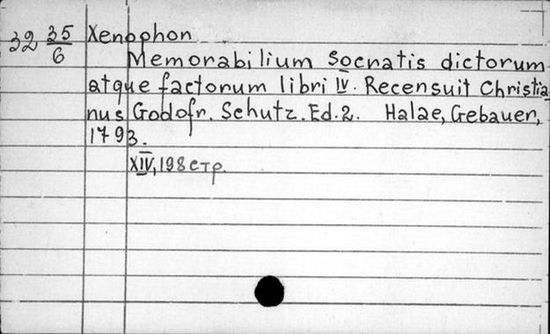 32 35/6 Xenophon
Memorabilium Socratis dictorum
atque factorum libri IV. Recensuit Christia
nus Godofr. Schutz. Ed. 2. Halae, Gebauer,
1793.
XIV, 198 стр.